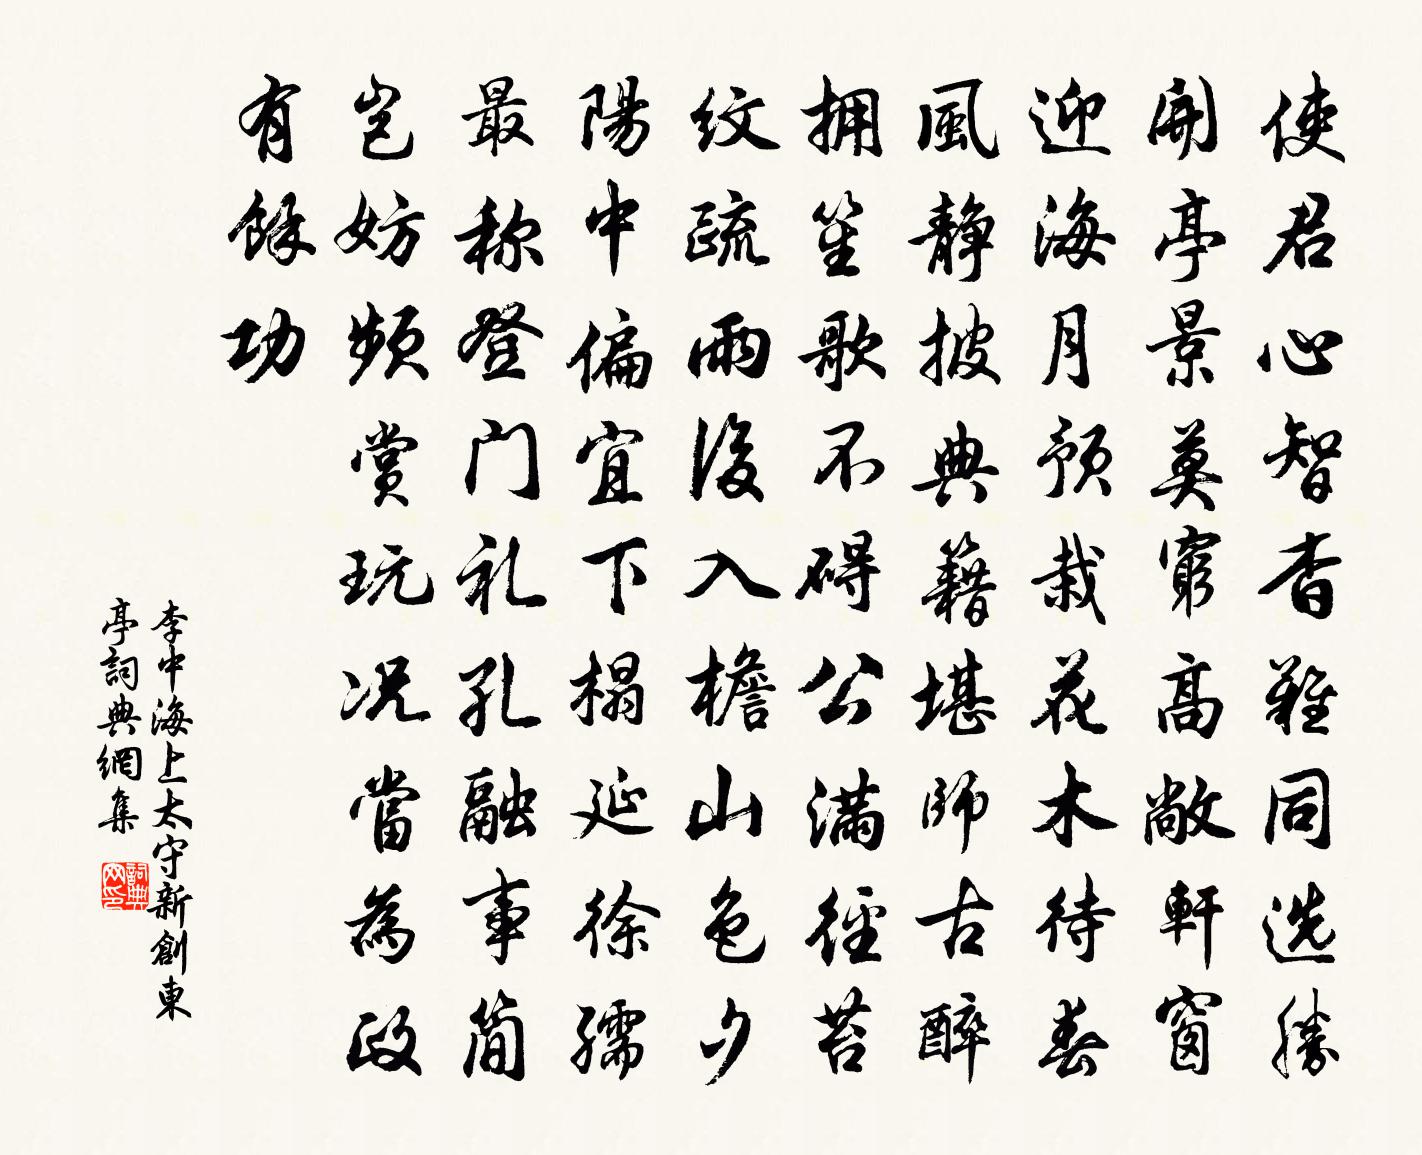 使君心智杳難同选勝
開亭景莫窮高敞軒窗
迎海月预栽花木待春
風静披典籍堪師古醉
拥笙歌不碍公满徑苔
纹疏雨後入檐山色夕
陽中偏宜下榻延徐孺
最称登门礼孔融事简
岂妨频赏玩况當為政
有餘功
李中海上太守新創東
亭詞典網集
詞典
网印